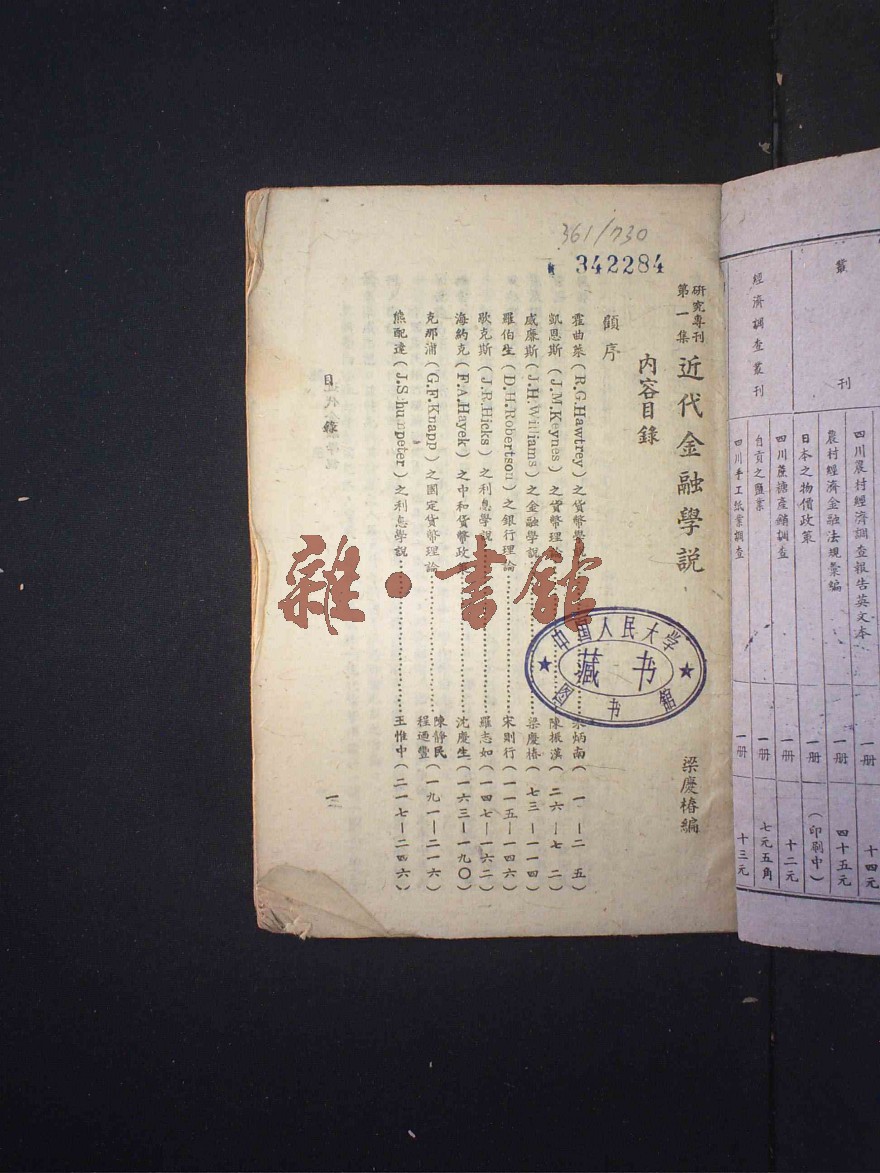 361/730
342284
研究專刊
第一集
近代金融學説
梁慶椿編
内容目錄
顧序
霍曲萊(R.G.Hawtrey)之貨幣學 炳南(一—二五)
凱恩斯(J.M.Keynes)之貨幣理論 陳振漢(二六—七二)
威廉斯(J.H.Williams)之金融學說 梁慶椿(七三—一一四)
羅伯生(D.H.Robertson)之銀行理論 宋則行(一一五—一四六)
歇克斯(J.R.Hicks)之利息學說 羅志如(一四七—一六二)
海約克(F.A.Hayek)之中和貨幣政 沈慶生(一六三—一九〇)
克那浦(G.F.Knapp)之國定貨幣理論 陳靜民 程迺豐(一九一—二一六)
熊配達(J.Schumpeter)之利息學說 王惟中(二一七—二四六)
目錄
中国人民大学
藏书
图书馆
雜·書館
叢刊
四川農村經濟調查報告英文本 一册 十四元
農村經濟金融法規彙編 一册 四十五元
日本之物價政策 一册 (印刷中)
經濟調查叢刊
四川蔗糖產銷調查 一册 十二元
自貢之鹽業 一册 七元五角
四川手工紙業調查 一册 十三元